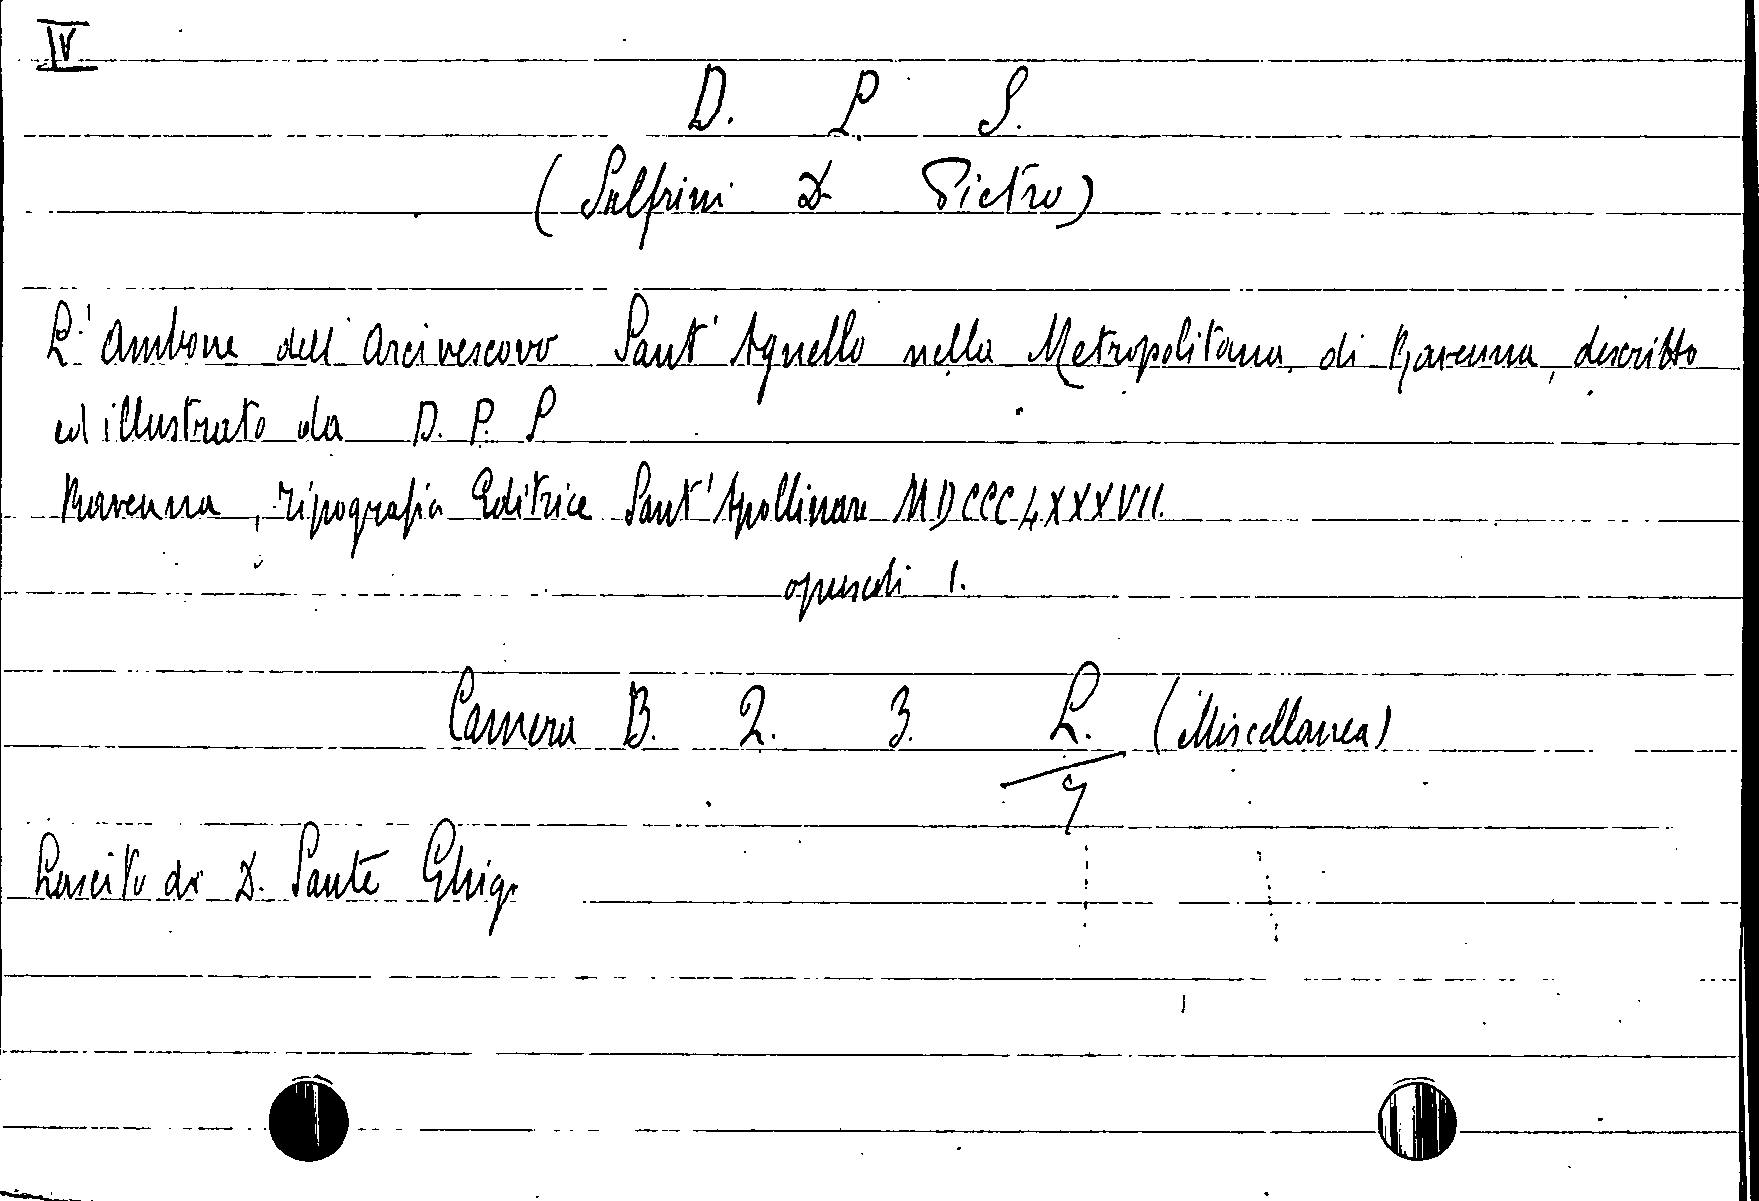 IV
D. P. S.
(Sulfrini D. Pietro)
L'Ambone dell'Arcivescovo Sant'Agnello nella Metropolitana di Ravenna, descritto
ed illustrato da D. P. S
Ravenna, Tipografia Editrice Sant'Apollinare MDCCCLXXXVII.
opuscoli 1.
Camera B. 2. 3. L. (Miscellanea)
9
Lascito di D. Sante Ghigi